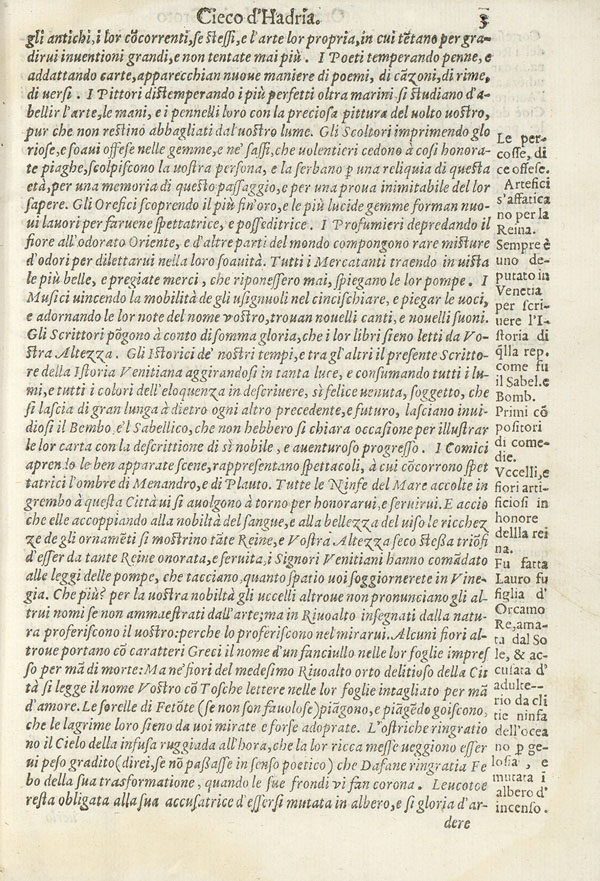 Cieco d'Hadria. 3
gli antichi, i lor cõcorrenti, se steſsi, e l'arte lor propria, in cui tẽtano per gra-
dirui inuentioni grandi, e non tentate mai più. I Poeti temperando penne, e
addattando carte, apparecchian nuoue maniere di poemi, di cãzoni, di rime,
di uersi. I Pittori distemperando i più perfetti oltra marini si studiano d'a-
bellir l'arte, le mani, e i pennelli loro con la preciosa pittura del uolto uostro,
pur che non restino abbagliati dal uostro lume. Gli Scoltori imprimendo glo
riose, e soaui offese nelle gemme, e ne' saſsi, che uolentieri cedono à cosi honora-
te piaghe, scolpiscono la uostra persona, e la serbano p una reliquia di questa
età, per una memoria di questo paſsaggio, e per una proua inimitabile del lor
sapere. Gli Orefici scoprendo il più fin'oro, e le più lucide gemme forman nuo-
ui lauori per faruene spettatrice, e poſseditrice. I Profumieri depredando il
fiore all'odorato Oriente, e d'altre parti del mondo compongono rare misture
d'odori per dilettarui nella loro soauità. Tutti i Mercatanti traendo in uista
le più belle, e pregiate merci, che riponeſsero mai, spiegano le lor pompe. I
Musici uincendo la mobilità de gli usignuoli nel cincischiare, e piegar le uoci,
e adornando le lor note del nome vostro, trouan nouelli canti, e nouelli suoni.
Gli Scrittori põgono à conto di somma gloria, che i lor libri sieno letti da Vo-
stra Altezza. Gli Istorici de' nostri tempi, e tra gl'altri il presente Scritto-
re della Istoria Venitiana aggirandosi in tanta luce, e consumando tutti i lu-
mi, e tutti i colori dell'eloquenza in descriuere, sì felice uenuta, soggetto, che
si lascia di gran lunga à dietro ogni altro precedente, e futuro, lasciano inui-
diosi il Bembo, e'l Sabellico, che non hebbero si chiara occasione per illustrar
le lor carta con la descrittione di sì nobile, e auenturoso progreſso. I Comici
aprendo le ben apparate scene, rappresentano spettacoli, à cui cõcorrono spet
tatrici l'ombre di Menandro, e di Plauto. Tutte le Ninfe del Mare accolte in
grembo à questa Città ui si auolgono à torno per honorarui, e seruirui. E accio
che elle accoppiando alla nobiltà del sangue, e alla bellezza del uiso le ricchez
ze de gli ornamẽti si mostrino tãte Reine, e Vostra Altezza seco steſsa triõfi
d'eſser da tante Reine onorata, e seruita, i Signori Venitiani hanno comãdato
alle leggi delle pompe, che tacciano, quanto spatio uoi soggiornerete in Vine-
gia. Che più? per la uostra nobiltà gli uccelli altroue non pronunciano gli al-
trui nomi se non ammaestrati dall'arte; ma in Riuoalto insegnati dalla natu-
ra proferiscono il uostro: perche lo proferiscono nel mirarui. Alcuni fiori al-
troue portano cõ caratteri Greci il nome d'un fanciullo nelle lor foglie impres
so per mã di morte: Ma ne' fiori del medesimo Riuoalto orto delitioso della Cit
tà si legge il nome Vostro cõ Tosche lettere nelle lor foglie intagliato per mã
d'amore. Le sorelle di Fetõte (se non son fauolose) piãgono, e piãgẽdo goiscono,
che le lagrime loro sieno da uoi mirate e forse adoprate. L'ostriche ringratio
no il Cielo della infusa ruggiada all'hora, che la lor ricca meſse ueggiono eſser
ui peso gradito (direi, se nõ paſsaſse in senso poetico) che Dafane ringratia Fe
bo della sua trasformatione, quando le sue frondi vi fan corona. Leucotoe
resta obligata alla sua accusatrice d'eſsersi mutata in albero, e si gloria d'ar-
dere
Le per-
coſse, di
ce offese.
Artefici
s'affatica
no per la
Reina.
Sempre è
uno de-
putato in
Venetia
per scri-
uere l'I-
storia di
q̃lla rep.
come fu
il Sabel. e
Bomb.
Primi cõ
positori
di come-
die.
Vccelli, e
fiori arti-
ficiosi in
honore
dellla rei
na.
Fu fatta
Lauro fu
figlia d'
Orcamo
Re, ama-
ta dal So
le, & ac-
cusata d'
adulte--
rio da cli
tie ninfa
dell'ocea
no p ge-
losia, e
mutata i
albero d'
incenso.